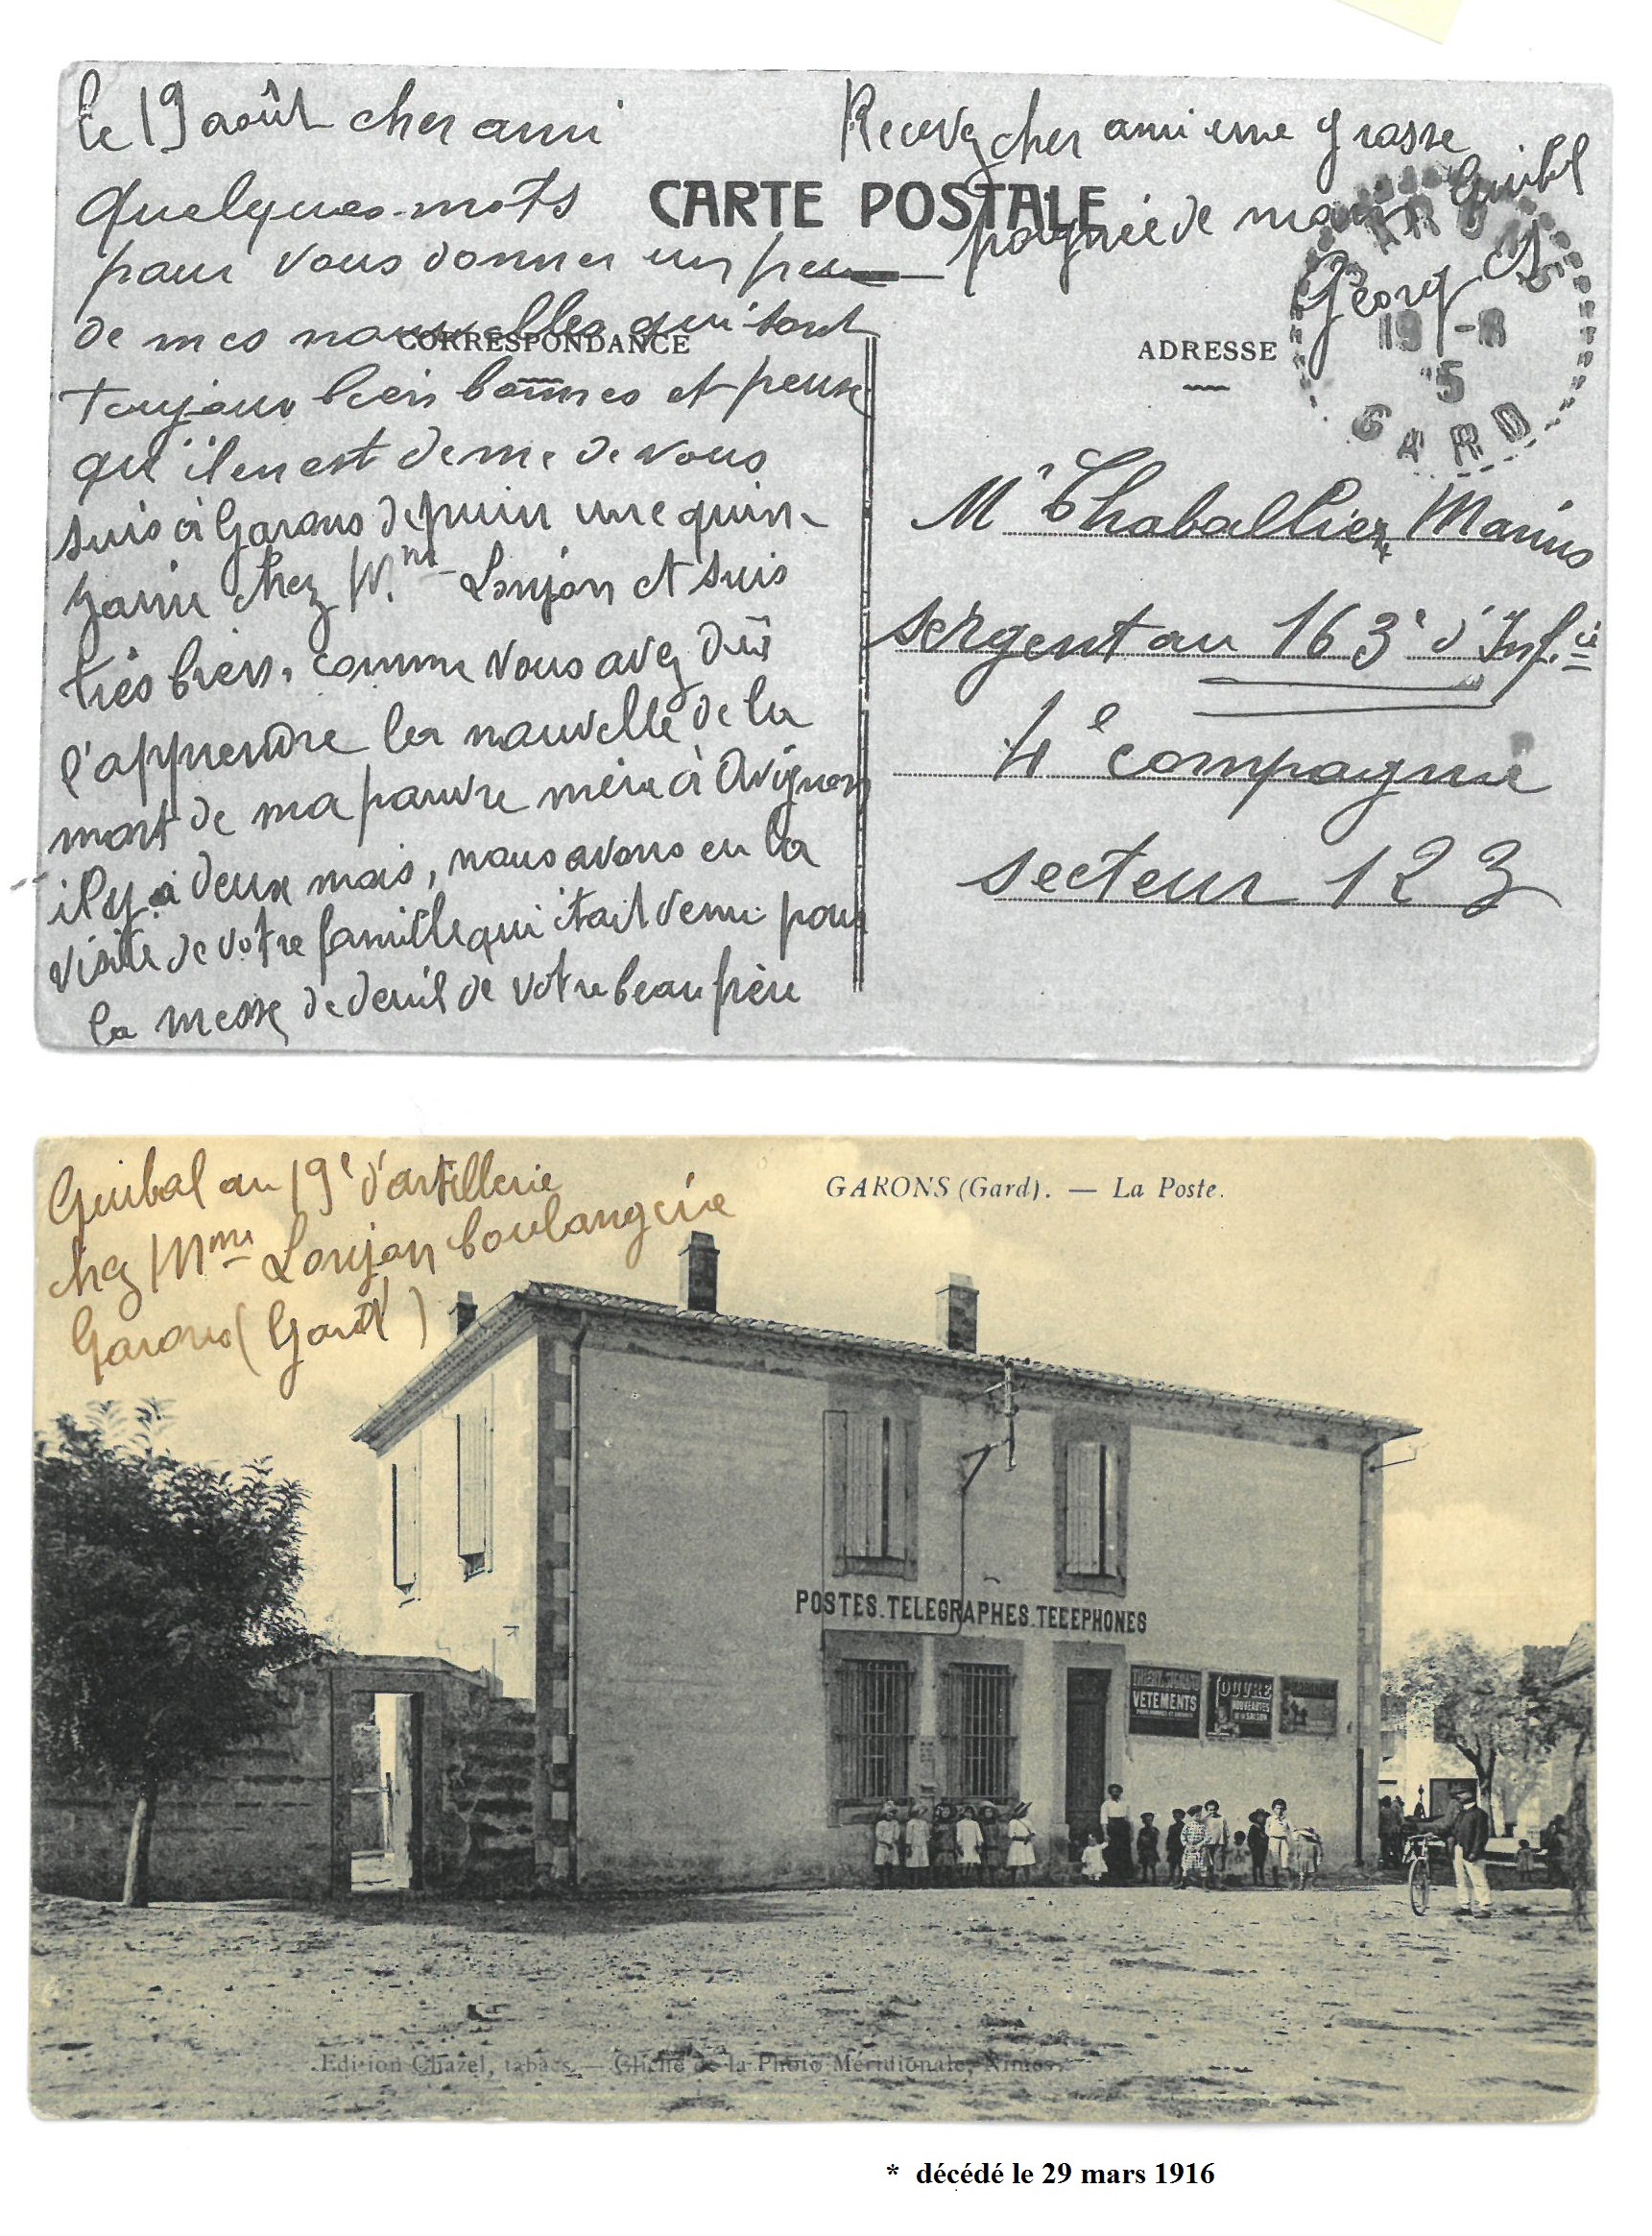 le 19 août cher ami
quelques mots
pour vous donner un peu
de mes nouvelles qui sont
toujours bien bonnes et pense
qu'il en est de me de vous
suis à Garons depuis une quin-
zaine chez Mme Loujon et suis
très bien, comme vous avez dû
l'apprendre la nouvelle de la
mort de ma pauvre mère à Avignon
il y a deux mois, nous avons eu la
visite de votre famille qui était venu pour
la messe de deuil de votre beau frère
Recevez cher ami une grosse
poignée de main Guibal
Georges
CARTE POSTALE
CORRESPONDANCE
ADRESSE
GARONS
19 -8
15
GARD
Mr Chaballier Marius
sergent au 163e d'Inf.ie
4e compagnie
secteur 123
Guibal au 19e d'artillerie
chez Mme Loujon boulangerie
Garons (Gard)
GARONS (Gard). — La Poste.
POSTES.TELEGRAPHES.TELEPHONES
VETEMENTS
LOUVRE
NOUVEAUTES
DE LA SAISON
Edition Chazel, tabacs. — Cliché de la Photo Méridionale, Nimes.
* décédé le 29 mars 1916